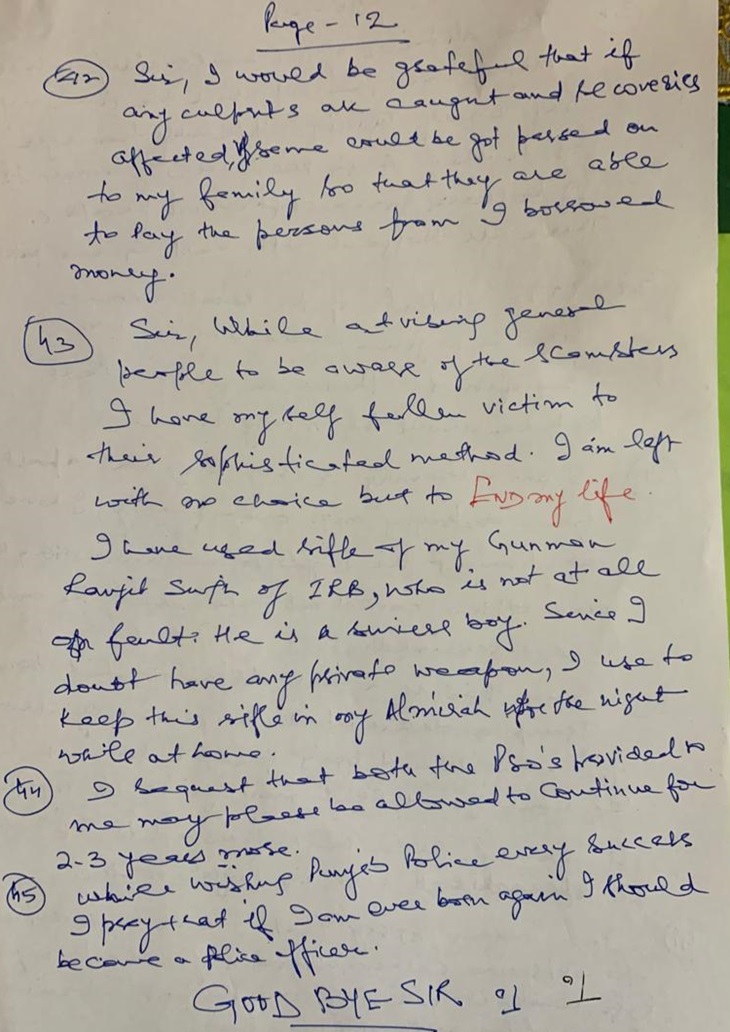 Page - 12
42 Sir, I would be grateful that if
any culprits are caught and recoveries
affected, same could be got passed on
to my family so that they are able
to pay the persons from I borrowed
money.
43 Sir, While advising general
people to be aware of the scamsters
I have myself fallen victim to
their sophisticated method. I am left
with no choice but to END my life.
I have used rifle of my Gunman
Ranjit Singh of IRB, who is not at all
fault. He is a sincere boy. Since I
doubt have any private weapon, I use to
keep this rifle in my Almirah the night
while at home.
44 I request that both the PSO's provided to
me may please be allowed to Continue for
2-3 years more.
45 While wishing Punjab Police every success
I pray that if I am ever born again I should
become a police officer.
GOOD BYE SIR